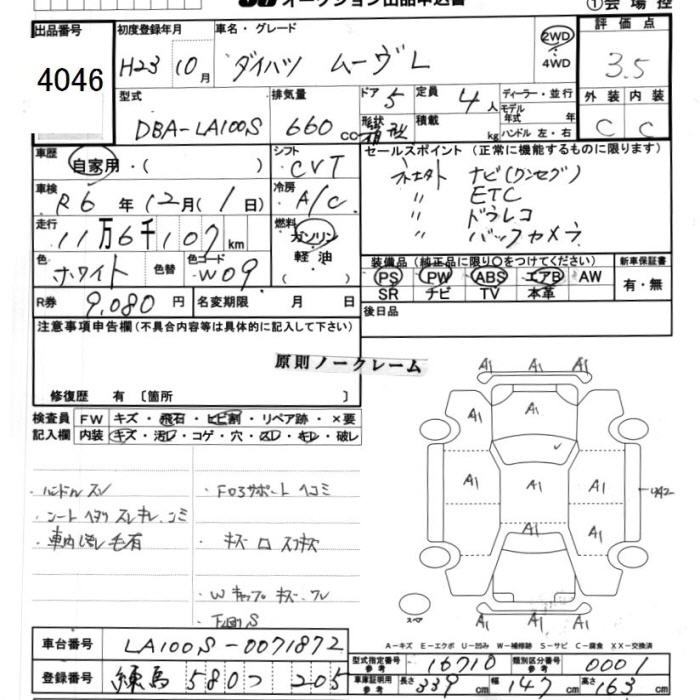 オークション出品申込書
①会場控
出品番号
4046
初度登録年月
H23 10月
車名・グレード
ダイハツ ムーヴL
2WD
4WD
評価点
3.5
外装 内装
C C
型式
DBA-LA100S
排気量
660 cc
ドア 5
定員 4人
形状 箱形
積載 kg
ディーラー・並行
モデル年式 年
ハンドル 左・右
車歴
自家用・( )
シフト
CVT
車検
R6年12月(1日)
冷房
A/C
走行
11万6千107km
燃料
ガソリン
軽油
( )
色
ホワイト
色替
色コード
W09
R券
9,080円
名変期限 月 日
セールスポイント (正常に機能するものに限ります)
ナビ(ワンセグ)
〃 ETC
〃 ドラレコ
〃 バックカメラ
装備品 (純正品に限り○をつけてください)
PS PW ABS エアB AW
SR ナビ TV 本革
新車保証書
有・無
後日品
注意事項申告欄(不具合内容等は具体的に記入して下さい)
原則ノークレーム
修復歴 有 〔箇所 〕
検査員記入欄
FW キズ・飛石・ヒビ割・リペア跡・×要
内装 キズ・汚レ・コゲ・穴・スレ・キレ・破レ
・ハンドルスレ
・シートヘタリ スレ キレ コミ
・車内汚レ 毛有
・F03サポートヘコミ
・Wキャップ キズ・ワレ
A1 A1 A1
A1 A1 A1
A1 A1 A1
A1 A1
A1 A1 A1
スペア
A-キズ E-エクボ U-凹み W-補修跡 S-サビ C-腐食 XX-交換済
車台番号
LA100S-0071872
登録番号
練馬 580つ 205
型式指定番号 参考
16710
類別区分番号 参考
0001
車庫証明用 参考
長さ 339cm 幅 147cm 高さ 163cm